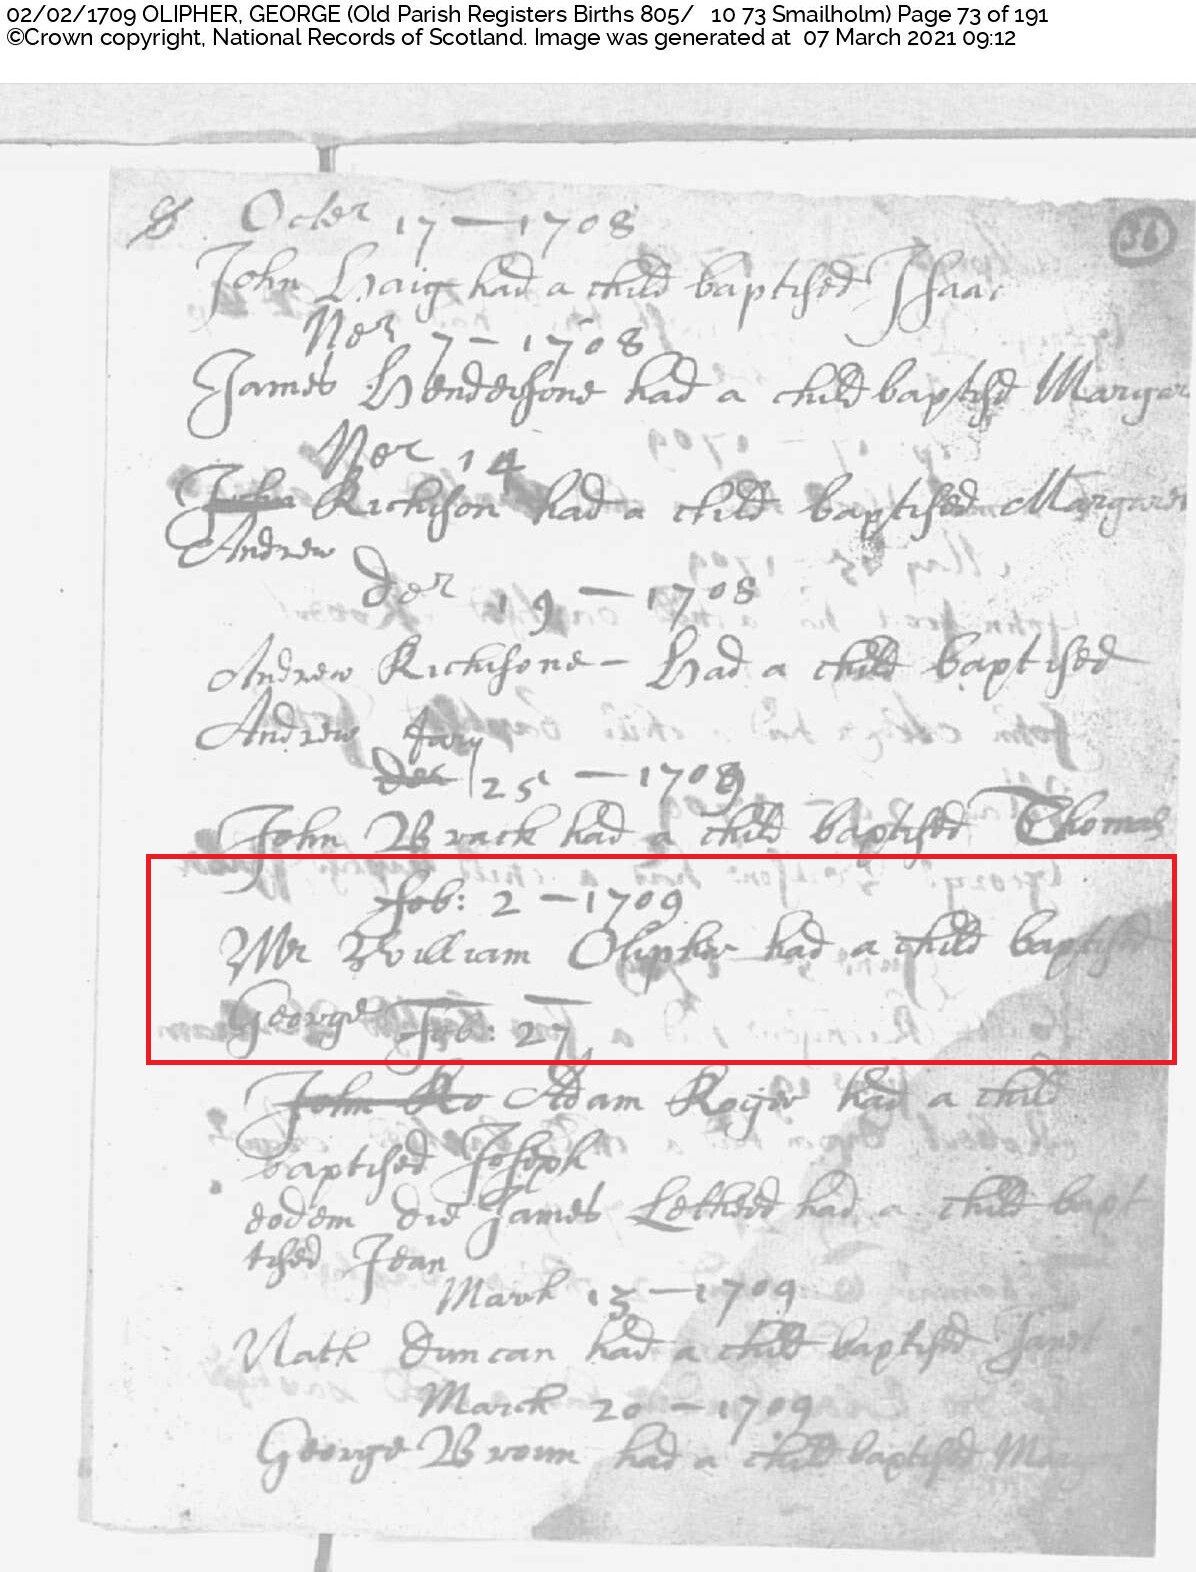 02/02/1709 OLIPHER, GEORGE (Old Parish Registers Births 805/ 10 73 Smailholm) Page 73 of 191
©Crown copyright, National Records of Scotland. Image was generated at 07 March 2021 09:12
36
8 Octer 17 — 1708
John Haig had a child baptised Isaac
Ner 7 — 1708
James Hendersone had a child baptisd Margar
Ner 14
John Richison had a child baptised Margaret
Andrew
Der 19 — 1708
Andrew Richisone — Had a child baptised
Andrew Jary
Der 25 — 1709
John Brack had a child baptised Thomas
Feb: 2 — 1709
Mr William Olipher had a child baptised
George Feb: 27
John Ro Adam Roger had a child
baptised Joseph
eodem die James Letherd had a child bapt
tised Jean
March 13 — 1709
Nath Duncan had a child baptised Janet
March 20 — 1709
George Broun had a child baptised